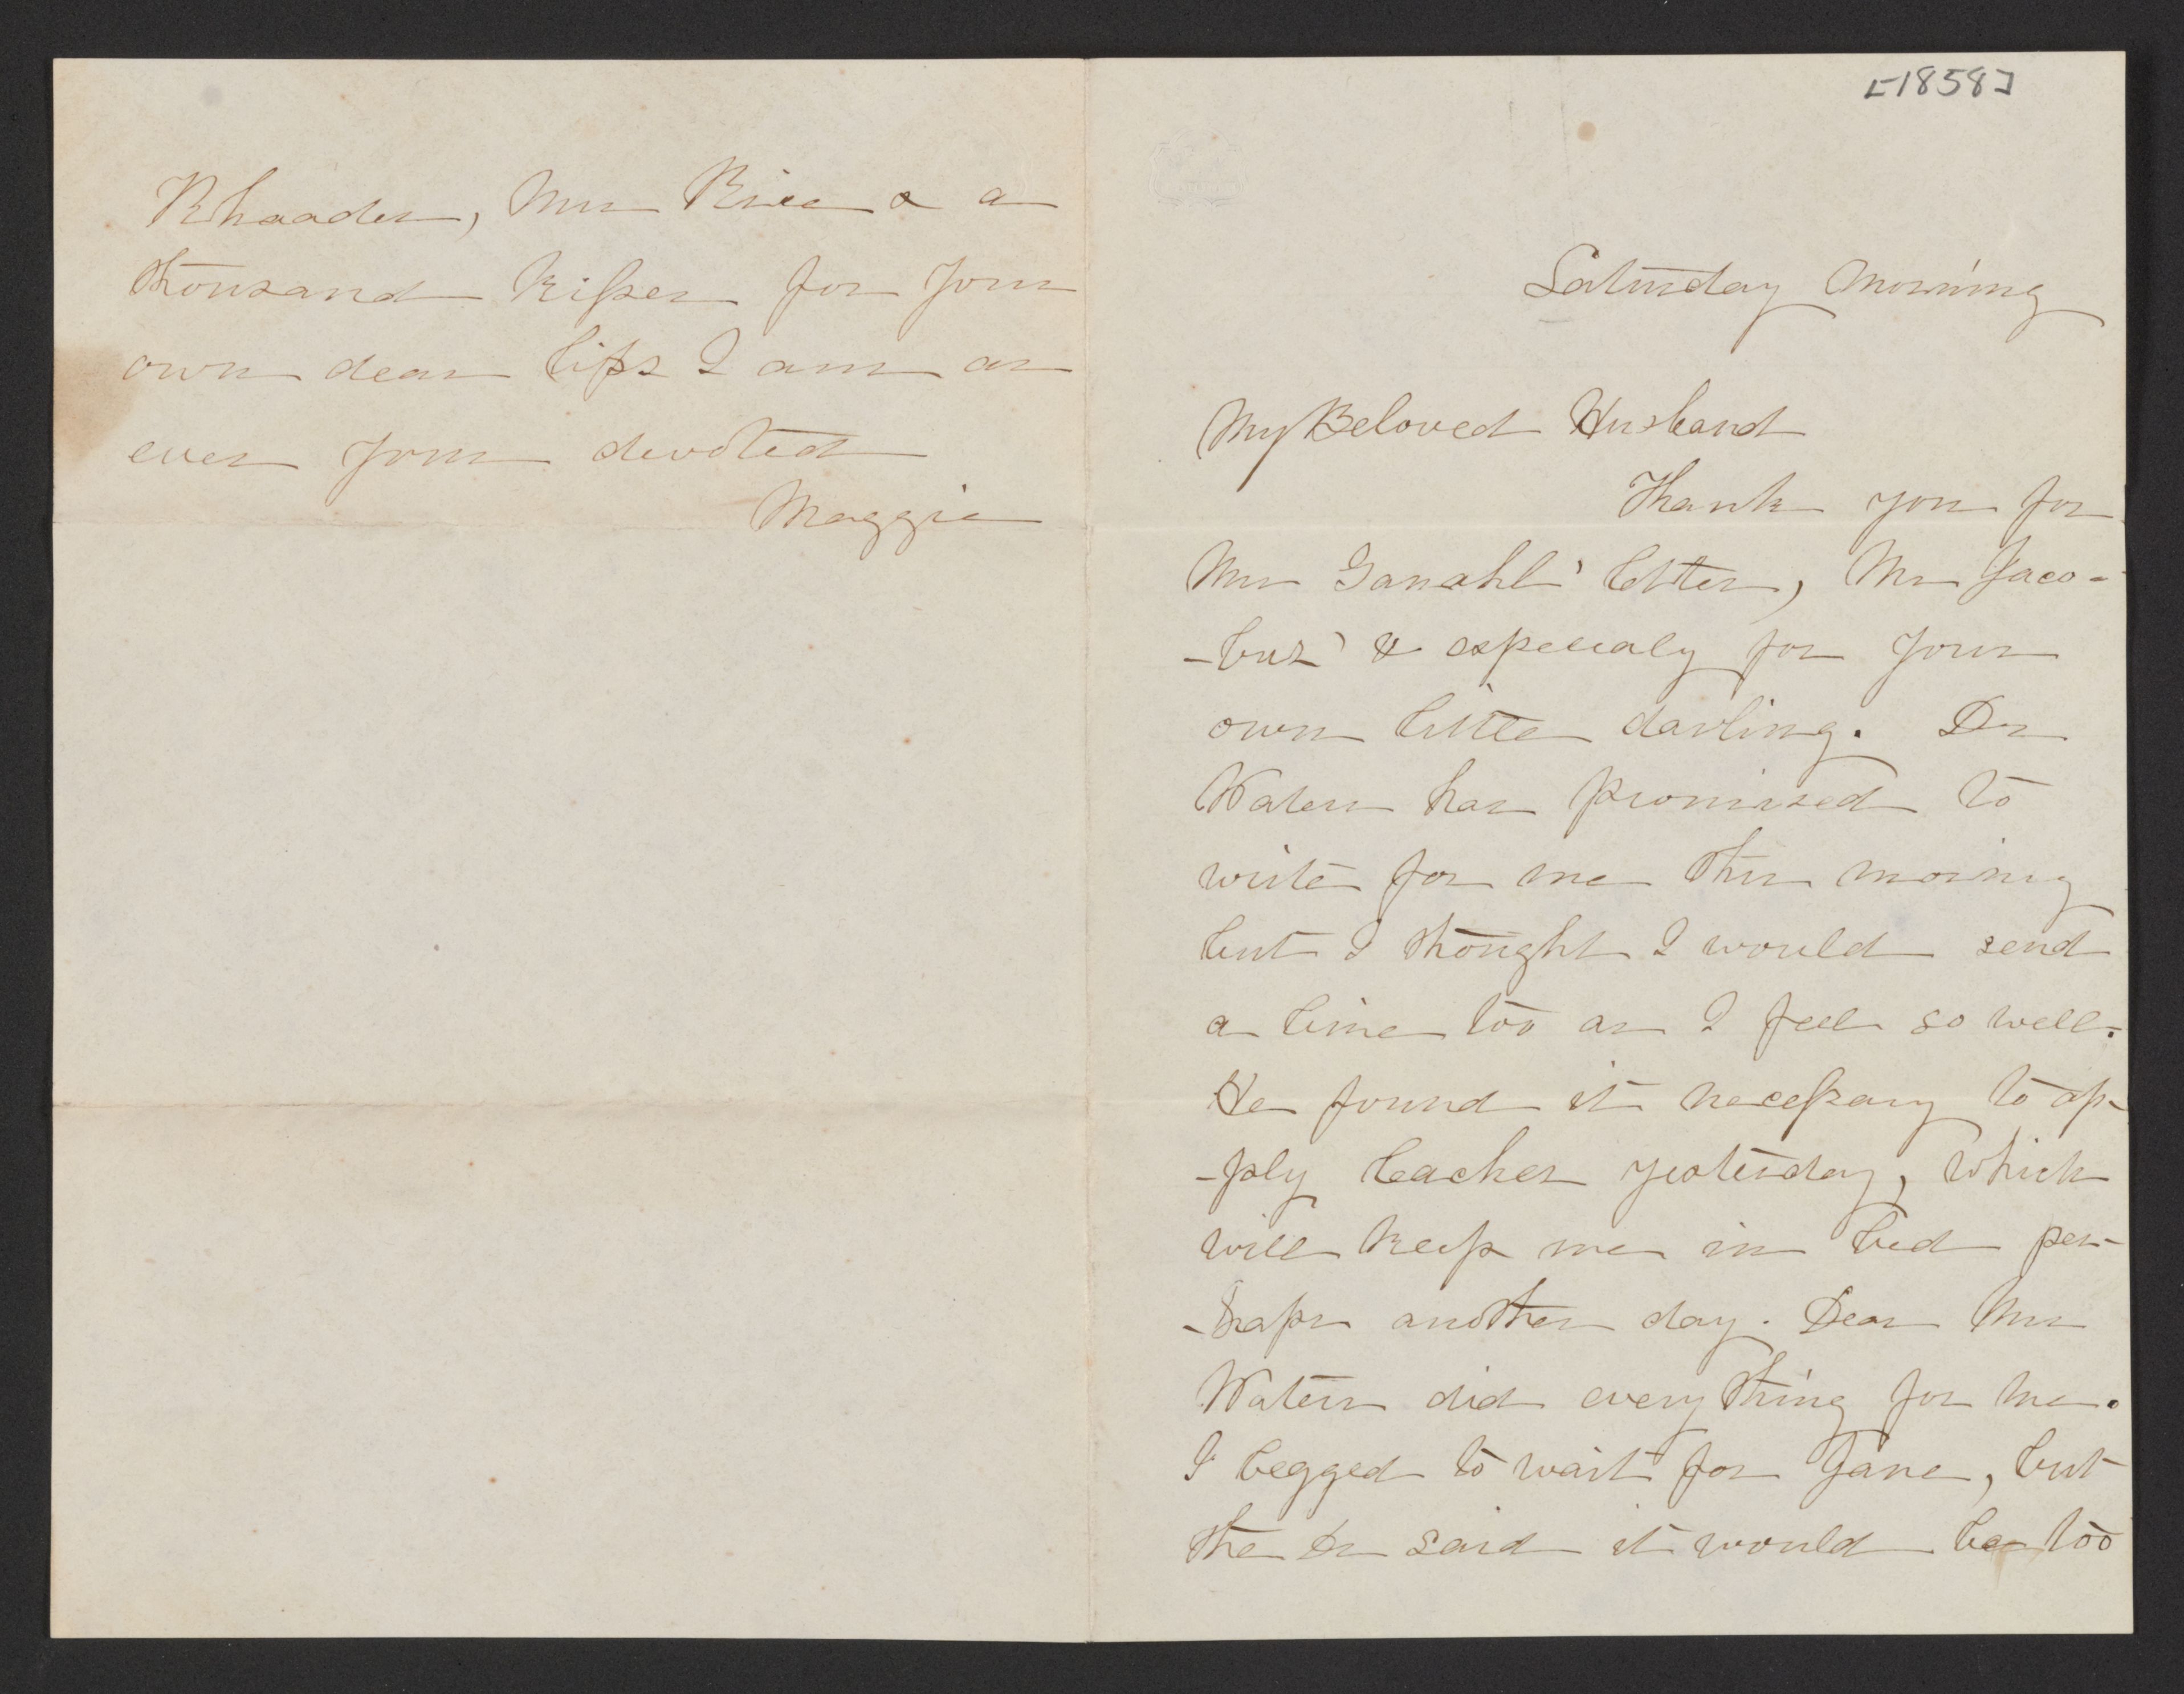 [1858]
Saturday Morning
My Beloved Husband
Thank you for
Mrs Ganahl's letter, Mr Jaco-
-bus' & especialy for your
own little darling. Dr
Waters has promised to
write for me this morning
but I thought I would send
a line too as I feel so well.
He found it necessary to ap-
-ply leaches yesterday, which
will keep me in bed per-
-haps another day. Dear Mrs
Waters did every thing for me.
I begged to wait for Jane, but
the Dr said it would be too
Rhoades, Mrs Rice & a
thousand kisses for your
own dear lips I am as
ever your devoted
Maggie